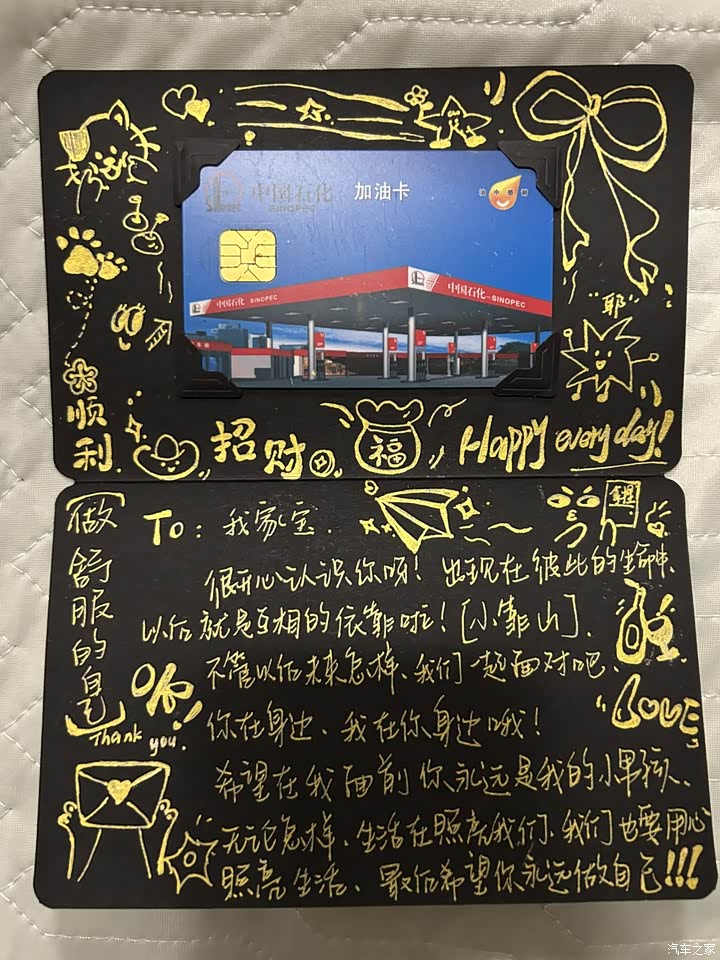 中国石化 加油卡
SINOPEC
中国石化 SINOPEC
中国石化 SINOPEC
"耶"
顺利
招财
福
Happy every day!
做舒服的自己
To: 我家宝.
很开心认识你呀! 出现在彼此的生命中.
以后就是互相的依靠啦! [小靠山].
不管以后未来怎样、我们一起面对吧.
你在身边、我在你身边哦!
"LOVE"
Thank you!
希望在我面前你永远是我的小男孩、
无论怎样、生活在照亮我们、我们也要用心
照亮生活、最后希望你永远做自己!!!
汽车之家